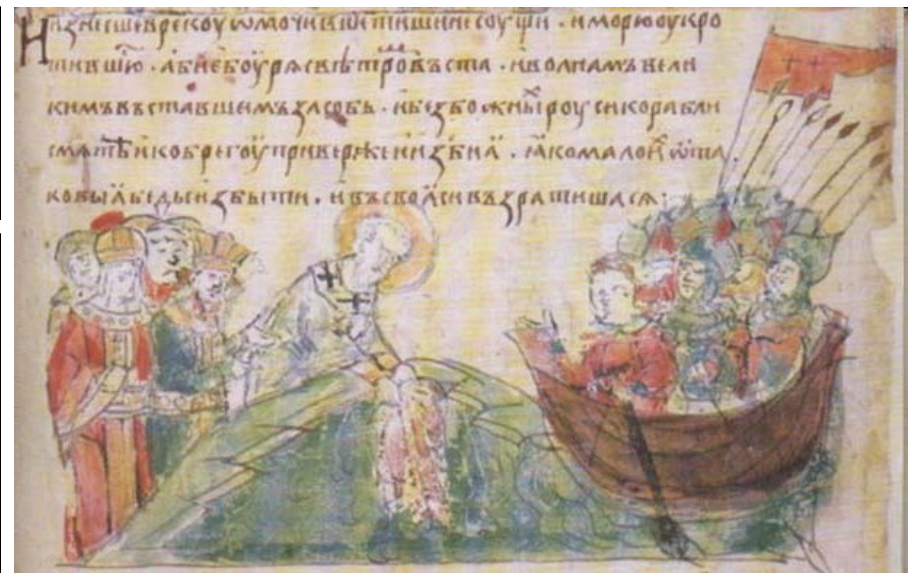 и҆знесше врекоу ѡмочивше тишинѣ соущи · и морю оукро
тившюсѧ · абие боурѧ свѣтромъ въста · и волнамъ вели
кимъ въставшемъ засобь · и безбожныⷯ роуси корабли
смѧте и кобрегоу привержени и изби ꙗ · ꙗко мало иⷯ ѿ та
ковыꙗ бѣды избыти · и въсвоꙗси възратишасѧ